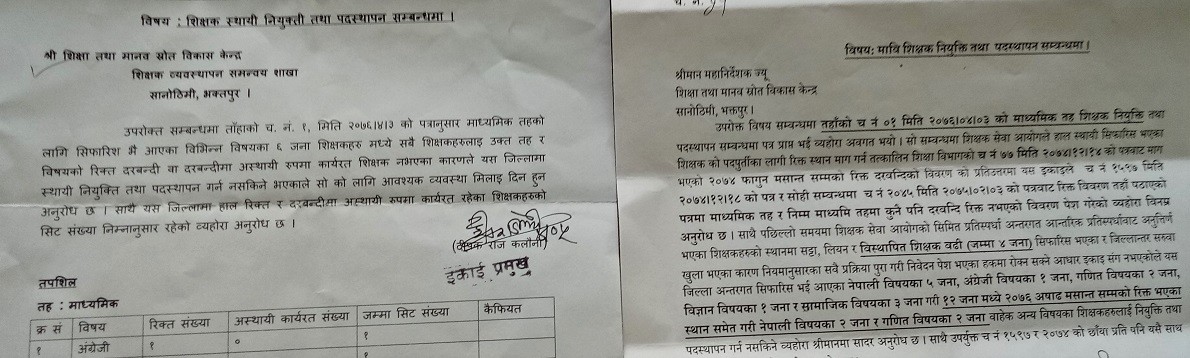 विषय : शिक्षक स्थायी नियुक्ती तथा पदस्थापन सम्बन्धमा ।
श्री शिक्षा तथा मानव स्रोत विकास केन्द्र
शिक्षक व्यवस्थापन समन्वय शाखा
सानोठिमी, भक्तपुर ।
उपरोक्त सम्बन्धमा ताँहाको च. नं. १, मिति २०७६।४।३ को पत्रानुसार माध्यमिक तहको
लागि सिफारिश भै आएका विभिन्न विषयका ६ जना शिक्षकहरु मध्ये सबै शिक्षकहरुलाइ उक्त तह र
विषयको रिक्त दरबन्दी वा दरबन्दीमा अस्थायी रुपमा कार्यरत शिक्षक नभएका कारणले यस जिल्लामा
स्थायी नियुक्ति तथा पदस्थापन गर्न नसकिने भएकाले सो को लागि आवश्यक व्यवस्था मिलाइ दिन हुन
अनुरोध छ । साथै यस जिल्लामा हाल रिक्त र दरबन्दीमा अस्थायी रुपमा कार्यरत रहेका शिक्षकहरुको
सिट संख्या निम्नानुसार रहेको व्यहोरा अनुरोध छ ।
(दीपक राज कलौनी)
इकाई प्रमुख
तपशिल
तह : माध्यमिक
क्र सं विषय रिक्त संख्या अस्थायी कार्यरत संख्या जम्मा सिट संख्या कैफियत
१ अंग्रेजी १ ० १
१
च. नं.
विषय: मावि शिक्षक नियुक्ति तथा पदस्थापन सम्बन्धमा ।
श्रीमान महानिर्देशक ज्यू
शिक्षा तथा मानव स्रोत विकास केन्द्र
सानोठिमी, भक्तपुर ।
उपरोक्त विषय सम्बन्धमा तहाँको च नं ०१ मिति २०७६।०४।०३ को माध्यमिक तह शिक्षक नियुक्ति तथा
पदस्थापन सम्बन्धमा पत्र प्राप्त भई व्यहोरा अवगत भयो । सो सम्बन्धमा शिक्षक सेवा आयोगले हाल स्थायी सिफारिस भएका
शिक्षक को पदपुर्तीका लागी रिक्त स्थान माग गर्न तत्कालिन शिक्षा विभागको च नं ७७ मिति २०७४।१२।१४ को पत्रवाट माग
भएको २०७४ फागुन मसान्त सम्मको रिक्त दरवन्दिको विवरण को प्रतिउत्तरमा यस इकाइले च नं १५९७ मिति
२०७४।१२।१८ को पत्र र सोही सम्वन्धमा च नं २०४५ मिति २०७५।०२।०३ को पत्रवाट रिक्त विवरण तहाँ पठाएको
पत्रमा माध्यमिक तह र निम्न माध्यमि तहमा कुनै पनि दरवन्दि रिक्त नभएको विवरण पेश गरेको व्यहोरा विनम्र
अनुरोध छ । साथै पछिल्लो समयमा शिक्षक सेवा आयोगको सिमित प्रतिस्पर्धा अन्तरगत आन्तरिक प्रतिस्पर्धावाट अनुत्तिर्ण
भएका शिक्षकहरुको स्थानमा सट्टा, लियन र विस्थापित शिक्षक वढी (जम्मा ४ जना) सिफारिस भएका र जिल्लान्तर सरुवा
खुला भएका कारण नियमानुसारका सवै प्रक्रिया पुरा गरी निवेदन पेश भएका हकमा रोक्न सक्ने आधार इकाइ संग नभएकोले यस
जिल्ला अन्तरगत सिफारिस भई आएका नेपाली विषयका ५ जना, अंग्रेजी विषयका १ जना, गणित विषयका २ जना,
विज्ञान विषयका १ जना र सामाजिक विषयका ३ जना गरी १२ जना मध्ये २०७६ अषाढ मसान्त सम्मको रिक्त भएका
स्थान समेत गरी नेपाली विषयका २ जना र गणित विषयका २ जना वाहेक अन्य विषयका शिक्षकहरुलाई नियुक्ति तथा
पदस्थापन गर्न नसकिने व्यहोरा श्रीमानमा सादर अनुरोध छ । साथै उपर्युक्त च नं १५९७ र २०७४ को छाँया प्रति पनि यसै साथ